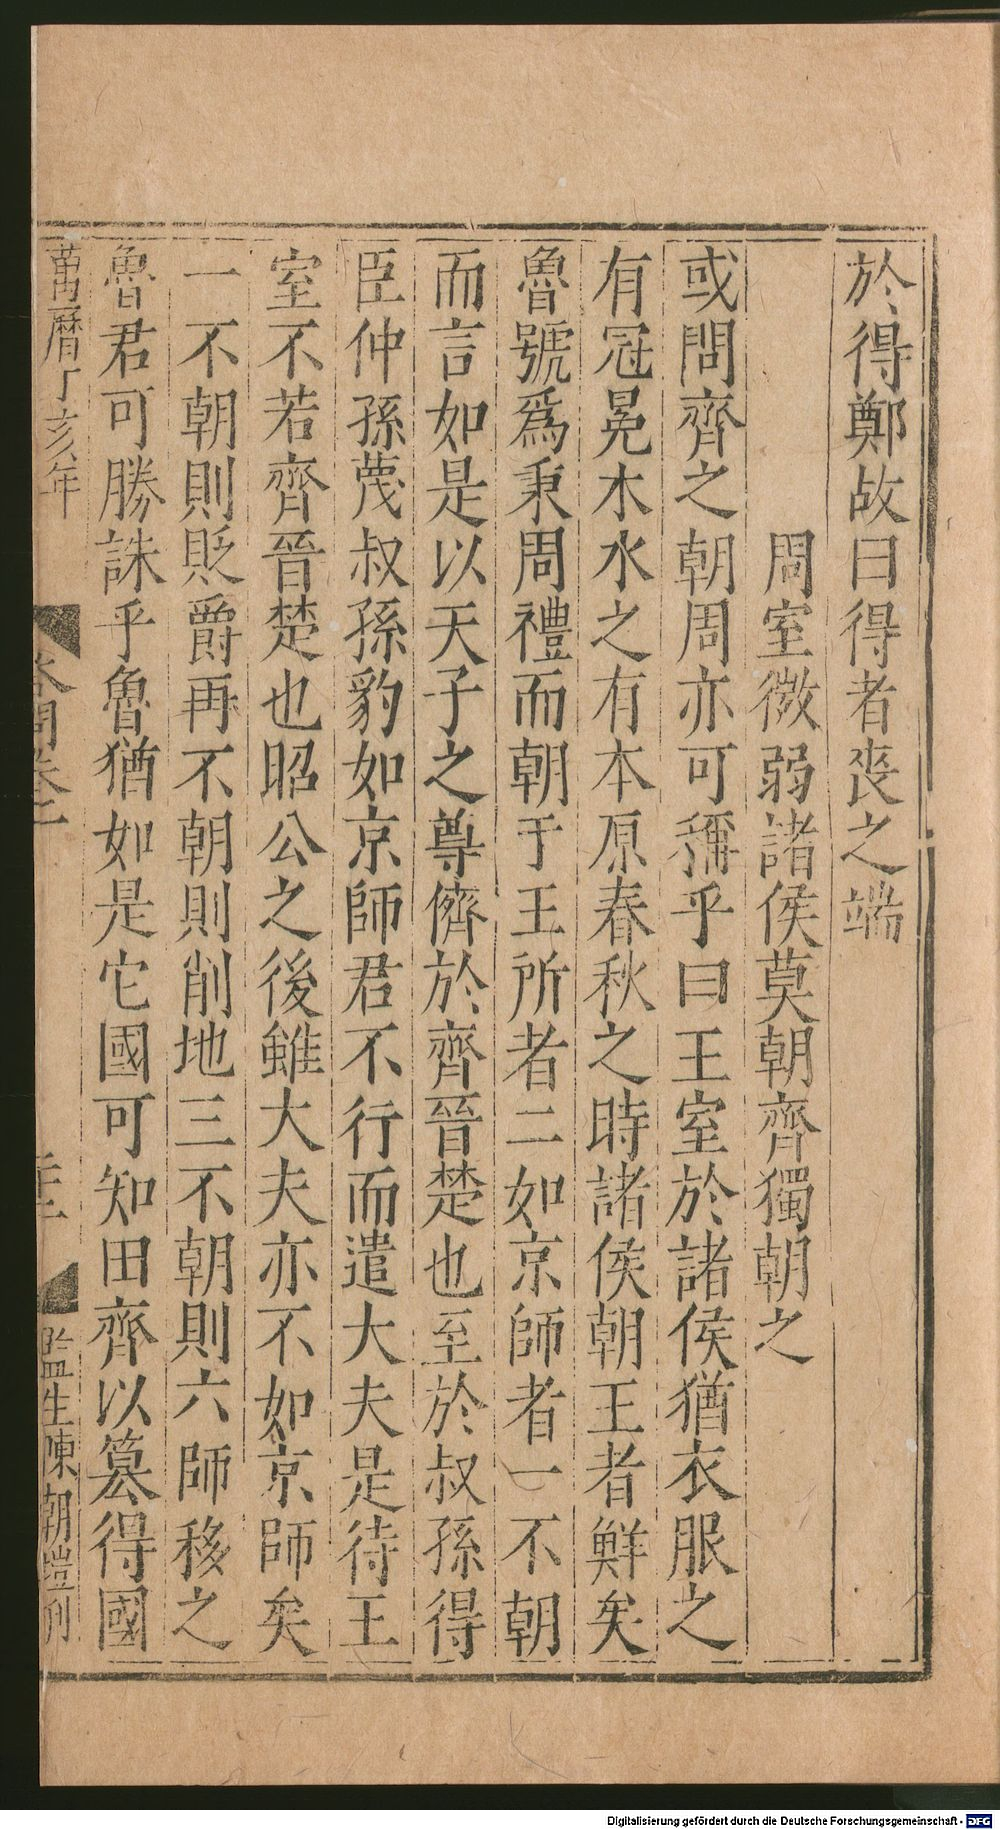 於得鄭故曰得者喪之端
周室微弱諸侯莫朝齊獨朝之
或問齊之朝周亦可稱乎曰王室於諸侯猶衣服之
有冠冕木水之有本原春秋之時諸侯朝王者鮮矣
魯號爲秉周禮而朝于王所者二如京師者一不朝
而言如是以天子之尊儕於齊晉楚也至於叔孫得
臣仲孫蔑叔孫豹如京師君不行而遣大夫是待王
室不若齊晉楚也昭公之後雖大夫亦不如京師矣
一不朝則貶爵再不朝則削地三不朝則六師移之
魯君可勝誅乎魯猶如是它國可知田齊以篡得國
萬曆丁亥年
監生陳朝塏刊
Digitalisierung gefördert durch die Deutsche Forschungsgemeinschaft - DFG